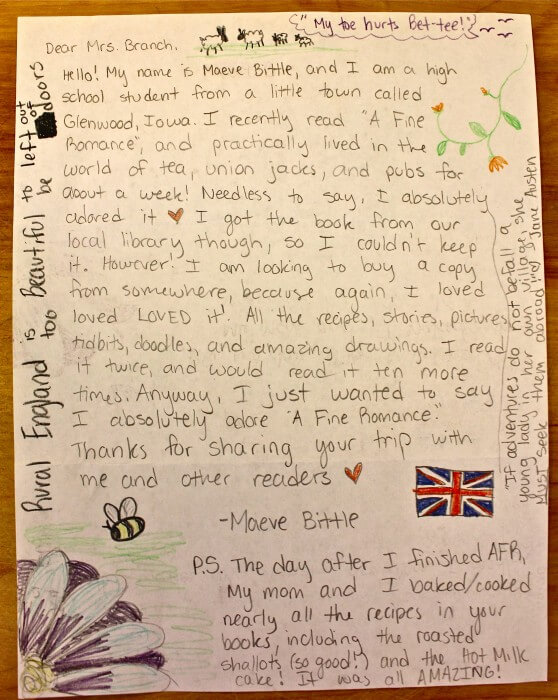 {"My toe hurts Bet-tee!"}
Dear Mrs. Branch,
Hello! My name is Maeve Bittle, and I am a high
school student from a little town called
Glenwood, Iowa. I recently read "A Fine
Romance", and practically lived in the
world of tea, union jacks, and pubs for
about a week! Needless to say, I absolutely
adored it I got the book from our
local library though, so I couldn't keep
it. However! I am looking to buy a copy
from somewhere, because again, I loved
loved LOVED it! All the recipes, stories, pictures,
tidbits, doodles, and amazing drawings. I read
it twice, and would read it ten more
times. Anyway, I just wanted to say
I absolutely adore "A Fine Romance."
Thanks for sharing your trip with
me and other readers
-Maeve Bittle
P.S. The day after I finished AFR,
My mom and I baked/cooked
nearly all the recipes in your
books, including the roasted
shallots (so good!) and the Hot Milk
cake! It was all AMAZING!
Rural England is too beautiful to be left out of doors
"If adventures do not befall a
young lady in her own village, she
must seek them abroad!" Jane Austen